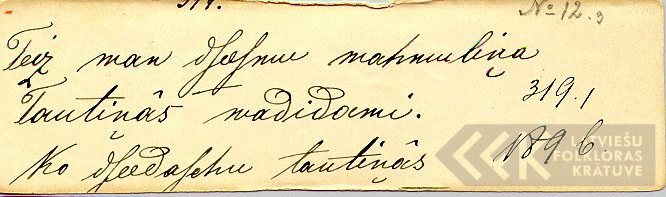 319.
№ 12.3
Teiz man dseesmu mahmuliņa
Tautiņâs wadidami.
319.1
Ko dseedaschu tautiņâs
1896.
LATVIEŠU
FOLKLORAS
KRĀTUVE